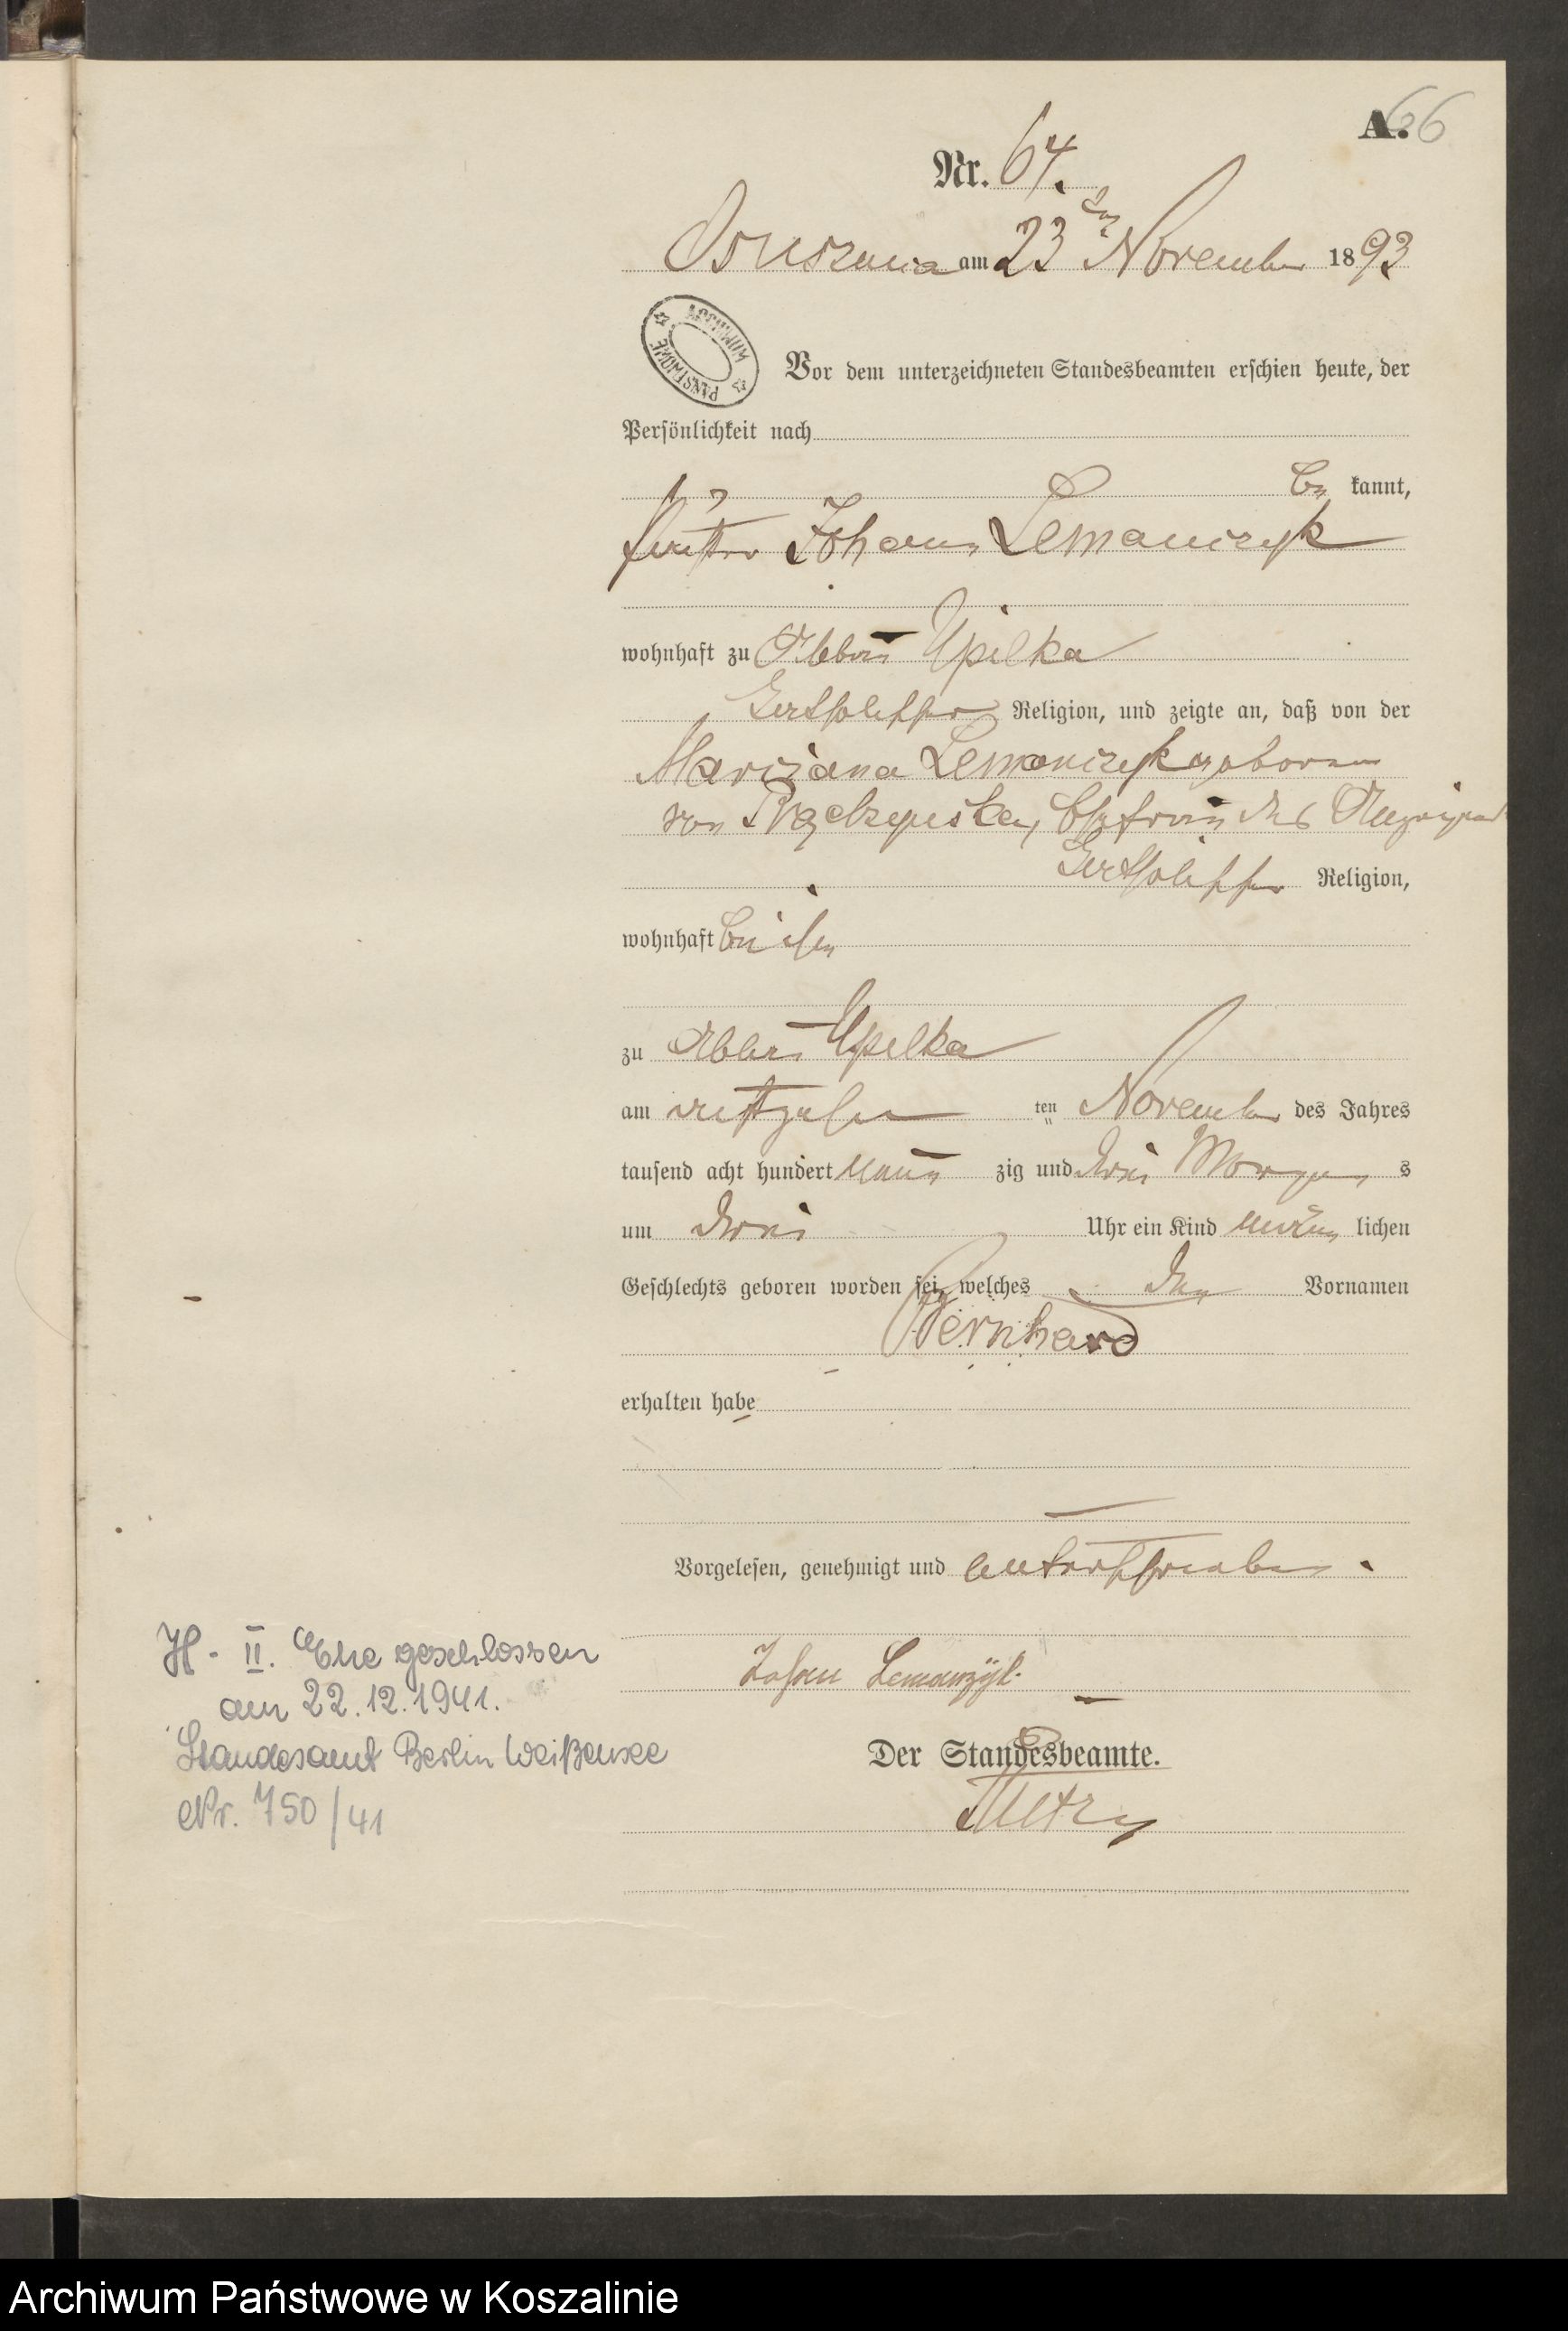 A. 66
Nr. 64.
Ossusznica am 23ten November 1893
ARCHIWUM PAŃSTWOWE
Vor dem unterzeichneten Standesbeamten erschien heute, der
Persönlichkeit nach
be kannt,
Johann Lemanczyk
wohnhaft zu Abbau Upilka
katholischer Religion, und zeigte an, daß von der
Marianna Lemanczyk geborene
von Ehefrau des Anzeigend
katholischer Religion,
wohnhaft bei ihm
zu Abbau Upilka
am achtzehn ten November des Jahres
tausend acht hundert neun zig und drei Morgen s
um drei Uhr ein Kind männ lichen
Geschlechts geboren worden sei, welches den Vornamen
Bernhard
erhalten habe
Vorgelesen, genehmigt und unterschrieben.
Johan Lemanzÿk.
Der Standesbeamte.
H - II. Ehe geschlossen
am 22.12.1941.
Standesamt Berlin Weißensee
Nr. 750/41
Archiwum Państwowe w Koszalinie